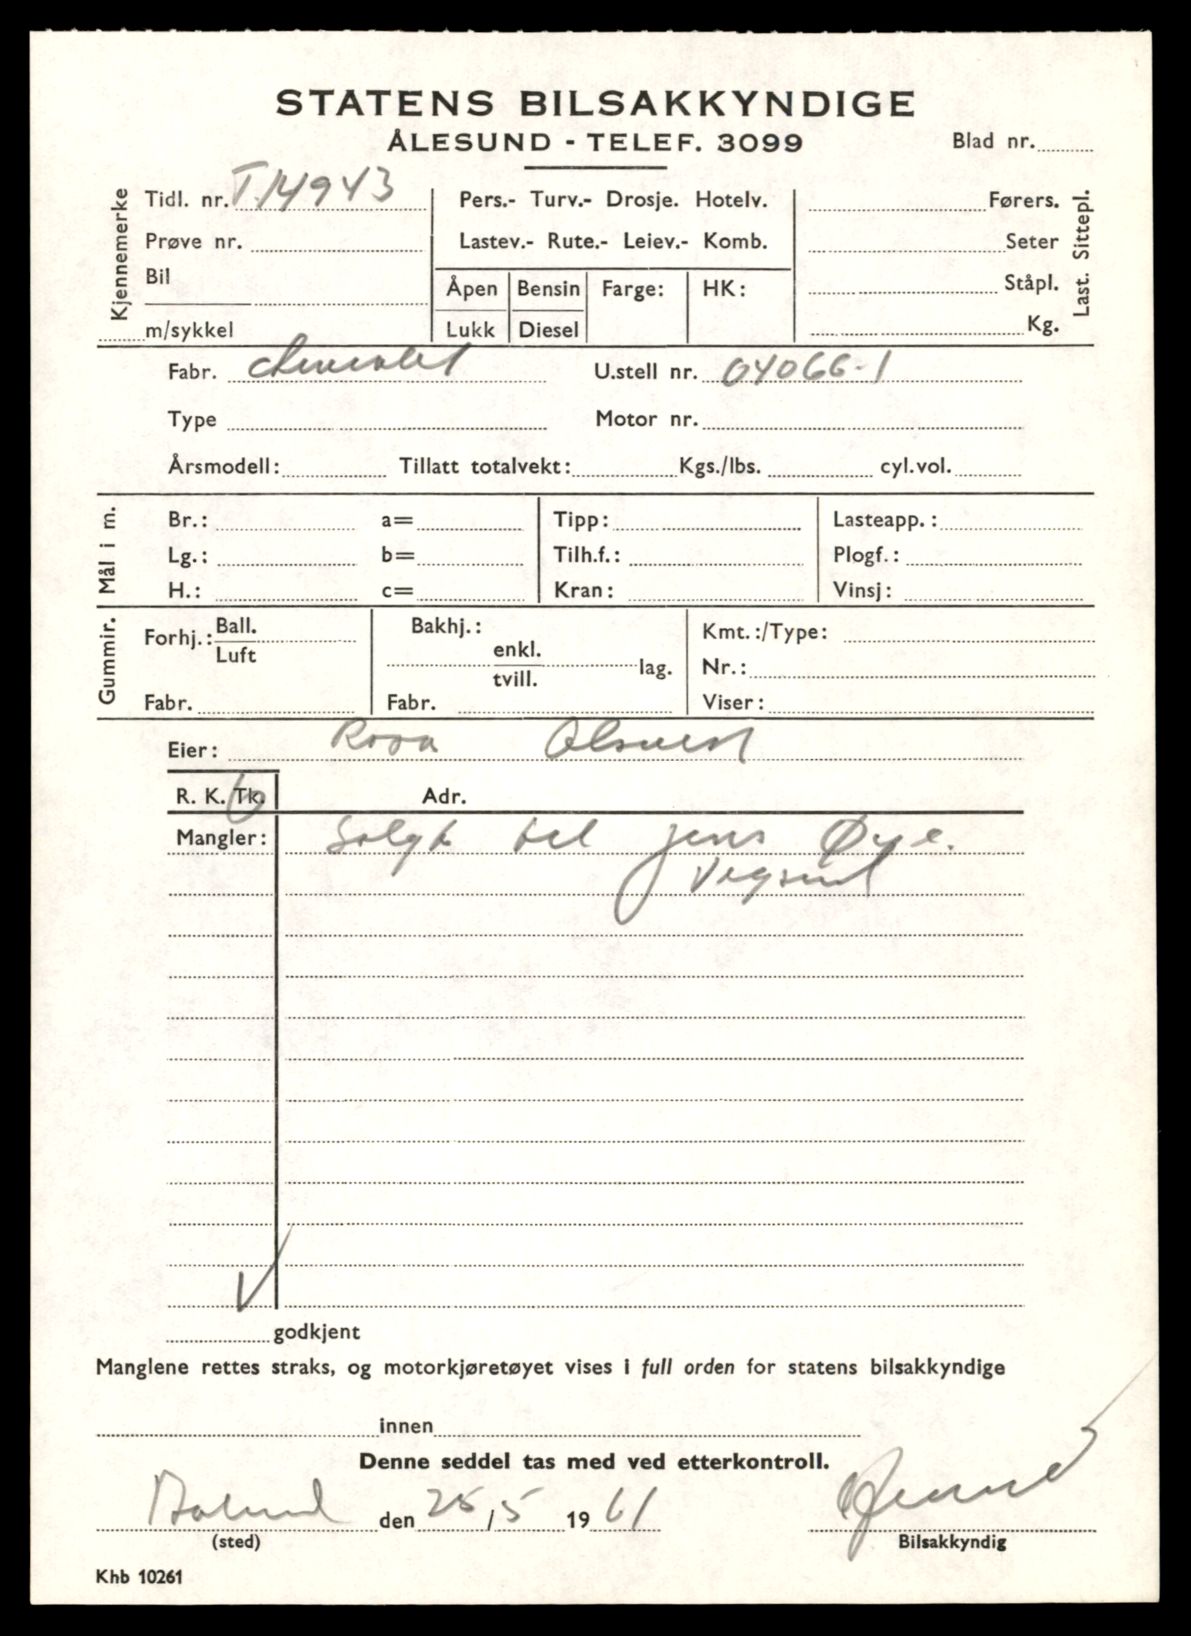 STATENS BILSAKKYNDIGE
ÅLESUND - TELEF. 3099
Blad nr.
Kjennemerke
Tidl. nr. T.14943
Prøve nr.
Bil
m/sykkel
Pers.- Turv.- Drosje. Hotelv.
Lastev.- Rute.- Leiev.- Komb.
Åpen Bensin Farge: HK:
Lukk Diesel
Førers.
Seter
Ståpl.
Kg.
Last. Sittepl.
Fabr. Chevrolet U.stell nr. 04066-1
Type Motor nr.
Årsmodell: Tillatt totalvekt: Kgs./lbs. cyl.vol.
Mål i m.
Br.: a= Tipp: Lasteapp.:
Lg.: b= Tilh.f.: Plogf.:
H.: c= Kran: Vinsj:
Gummir.
Forhj.: Ball. Luft
Fabr.
Bakhj.: enkl. tvill. lag.
Fabr.
Kmt.:/Type:
Nr.:
Viser:
Eier: Rosa
R. K. Tk. Adr.
Mangler: Solgt til Jens Øye.
Vegsund
godkjent
Manglene rettes straks, og motorkjøretøyet vises i full orden for statens bilsakkyndige
innen
Denne seddel tas med ved etterkontroll.
den 25/5 1961
(sted) Bilsakkyndig
Khb 10261